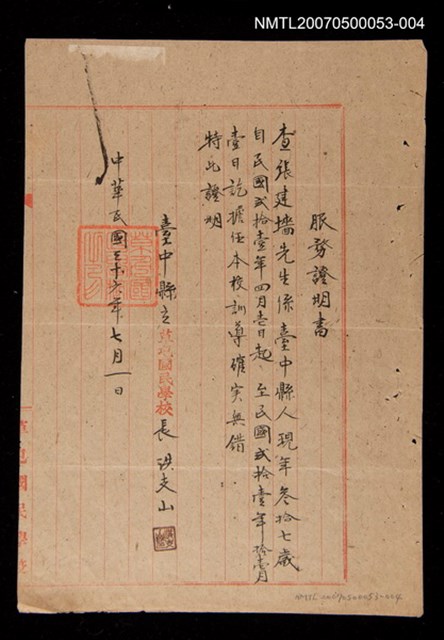 NMTL20070500053-004
服務證明書
查張建墻先生係臺中縣人現年叁拾七歲
自民國貳拾壹年四月壱日起至民國貳拾壹年拾壹月
壹日訖擔任本校訓導確实無錯
特此證明
臺中縣立 國民學校長 洪支山
中華民國三十六年七月一日
國民學校
NMTL20070500053-004